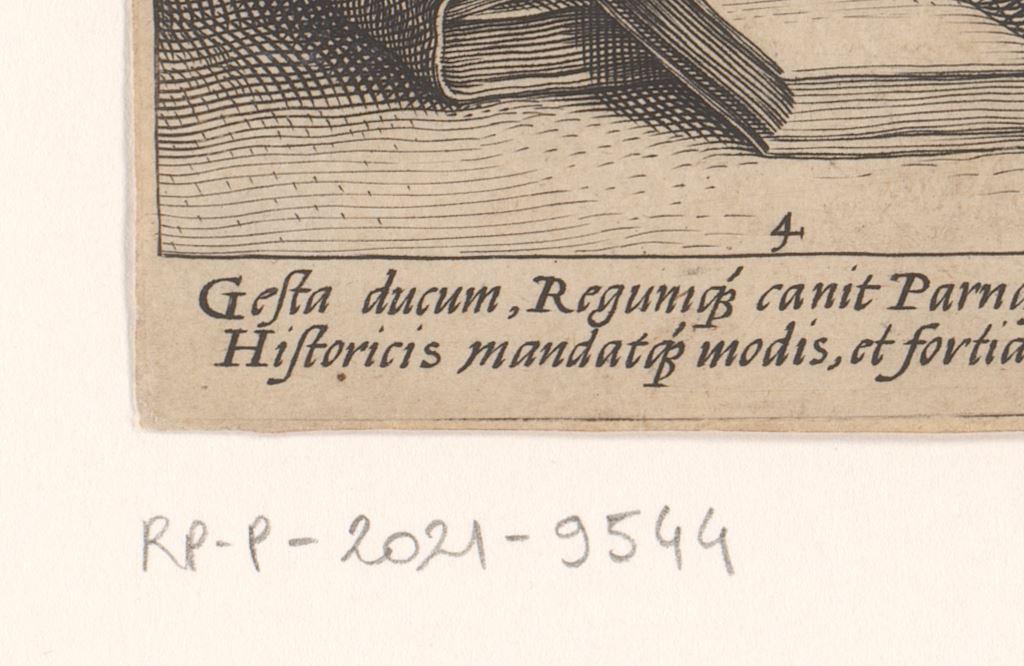 4
Gesta ducum, Regumq́₃ canit
Historicis mandatq́₃ modis, et
RP-P-2021-9544